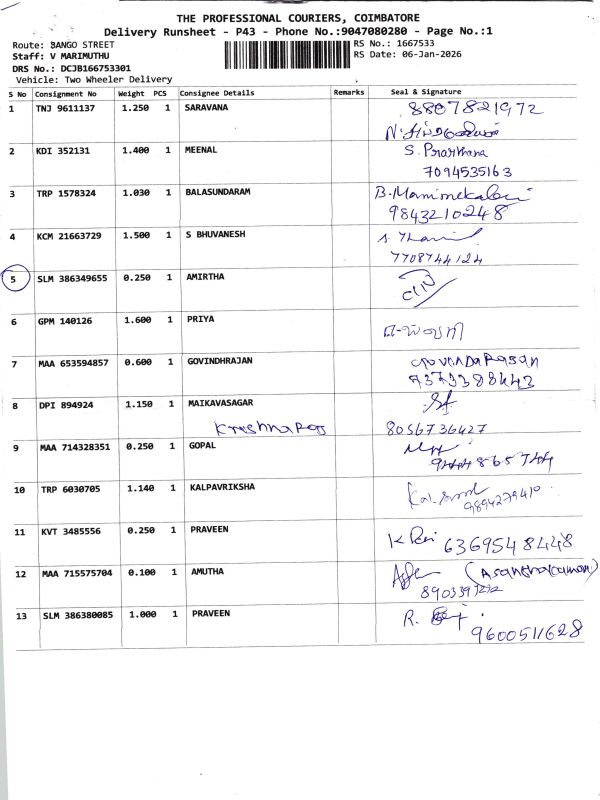 THE PROFESSIONAL COURIERS, COIMBATORE
Delivery Runsheet - P43 - Phone No.:9047080280 - Page No.:1
Route: BANGO STREET
Staff: V MARIMUTHU
DRS No.: DCJB166753301
Vehicle: Two Wheeler Delivery
RS No.: 1667533
RS Date: 06-Jan-2026
S No Consignment No Weight PCS Consignee Details Remarks Seal & Signature
1 TNJ 9611137 1.250 1 SARAVANA 8807821972
2 KDI 352131 1.400 1 MEENAL S. Prarthana
7094535163
3 TRP 1578324 1.030 1 BALASUNDARAM B. Manimekalai
9843210248
4 KCM 21663729 1.500 1 S BHUVANESH
7708744124
5 SLM 386349655 0.250 1 AMIRTHA
6 GPM 140126 1.600 1 PRIYA
7 MAA 653594857 0.600 1 GOVINDHRAJAN GOVINDARASAN
9373388442
8 DPI 894924 1.150 1 MAIKAVASAGAR
Krishna Raj 8056736427
9 MAA 714328351 0.250 1 GOPAL
9444865744
10 TRP 6030705 1.140 1 KALPAVRIKSHA
9894279410
11 KVT 3485556 0.250 1 PRAVEEN 6369548448
12 MAA 715575704 0.100 1 AMUTHA
13 SLM 386380085 1.000 1 PRAVEEN R.
9600511628